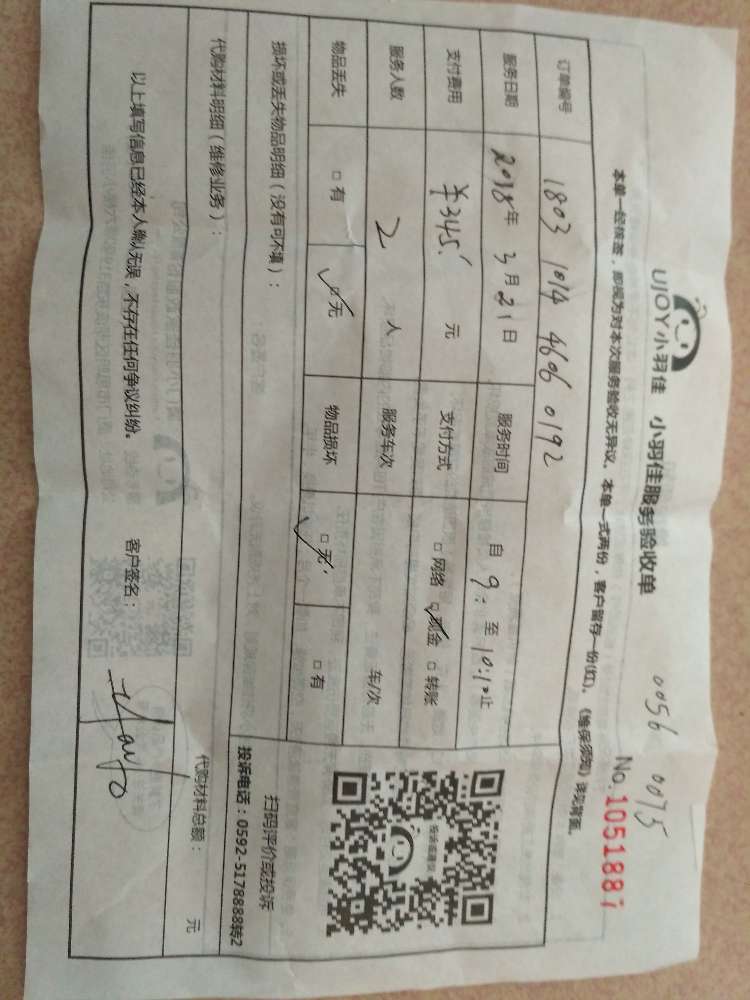 UJOY小羽佳 小羽佳服务验收单
0056 0075
No.1051887
本单一经核签，即视为对本次服务验收无异议。本单一式两份，客户留存一份(红)。《维保须知》详见背面。
订单编号 1803 1014 4606 0192
服务日期 2018年 3月21日 服务时间 自 9: 至 10:10止
支付费用 ￥345. 元 支付方式 □网络 ☑现金 □转账
服务人数 2 人 服务车次 车/次
物品丢失 □有 ☑无 物品损坏 ☑无 □有
损坏或丢失物品明细（没有可不填）：
扫码评价或投诉
投诉电话：0592-5178888转2
代购材料明细（维修业务）： 代购材料总额： 元
以上填写信息已经本人确认无误，不存在任何争议纠纷。 客户签名：